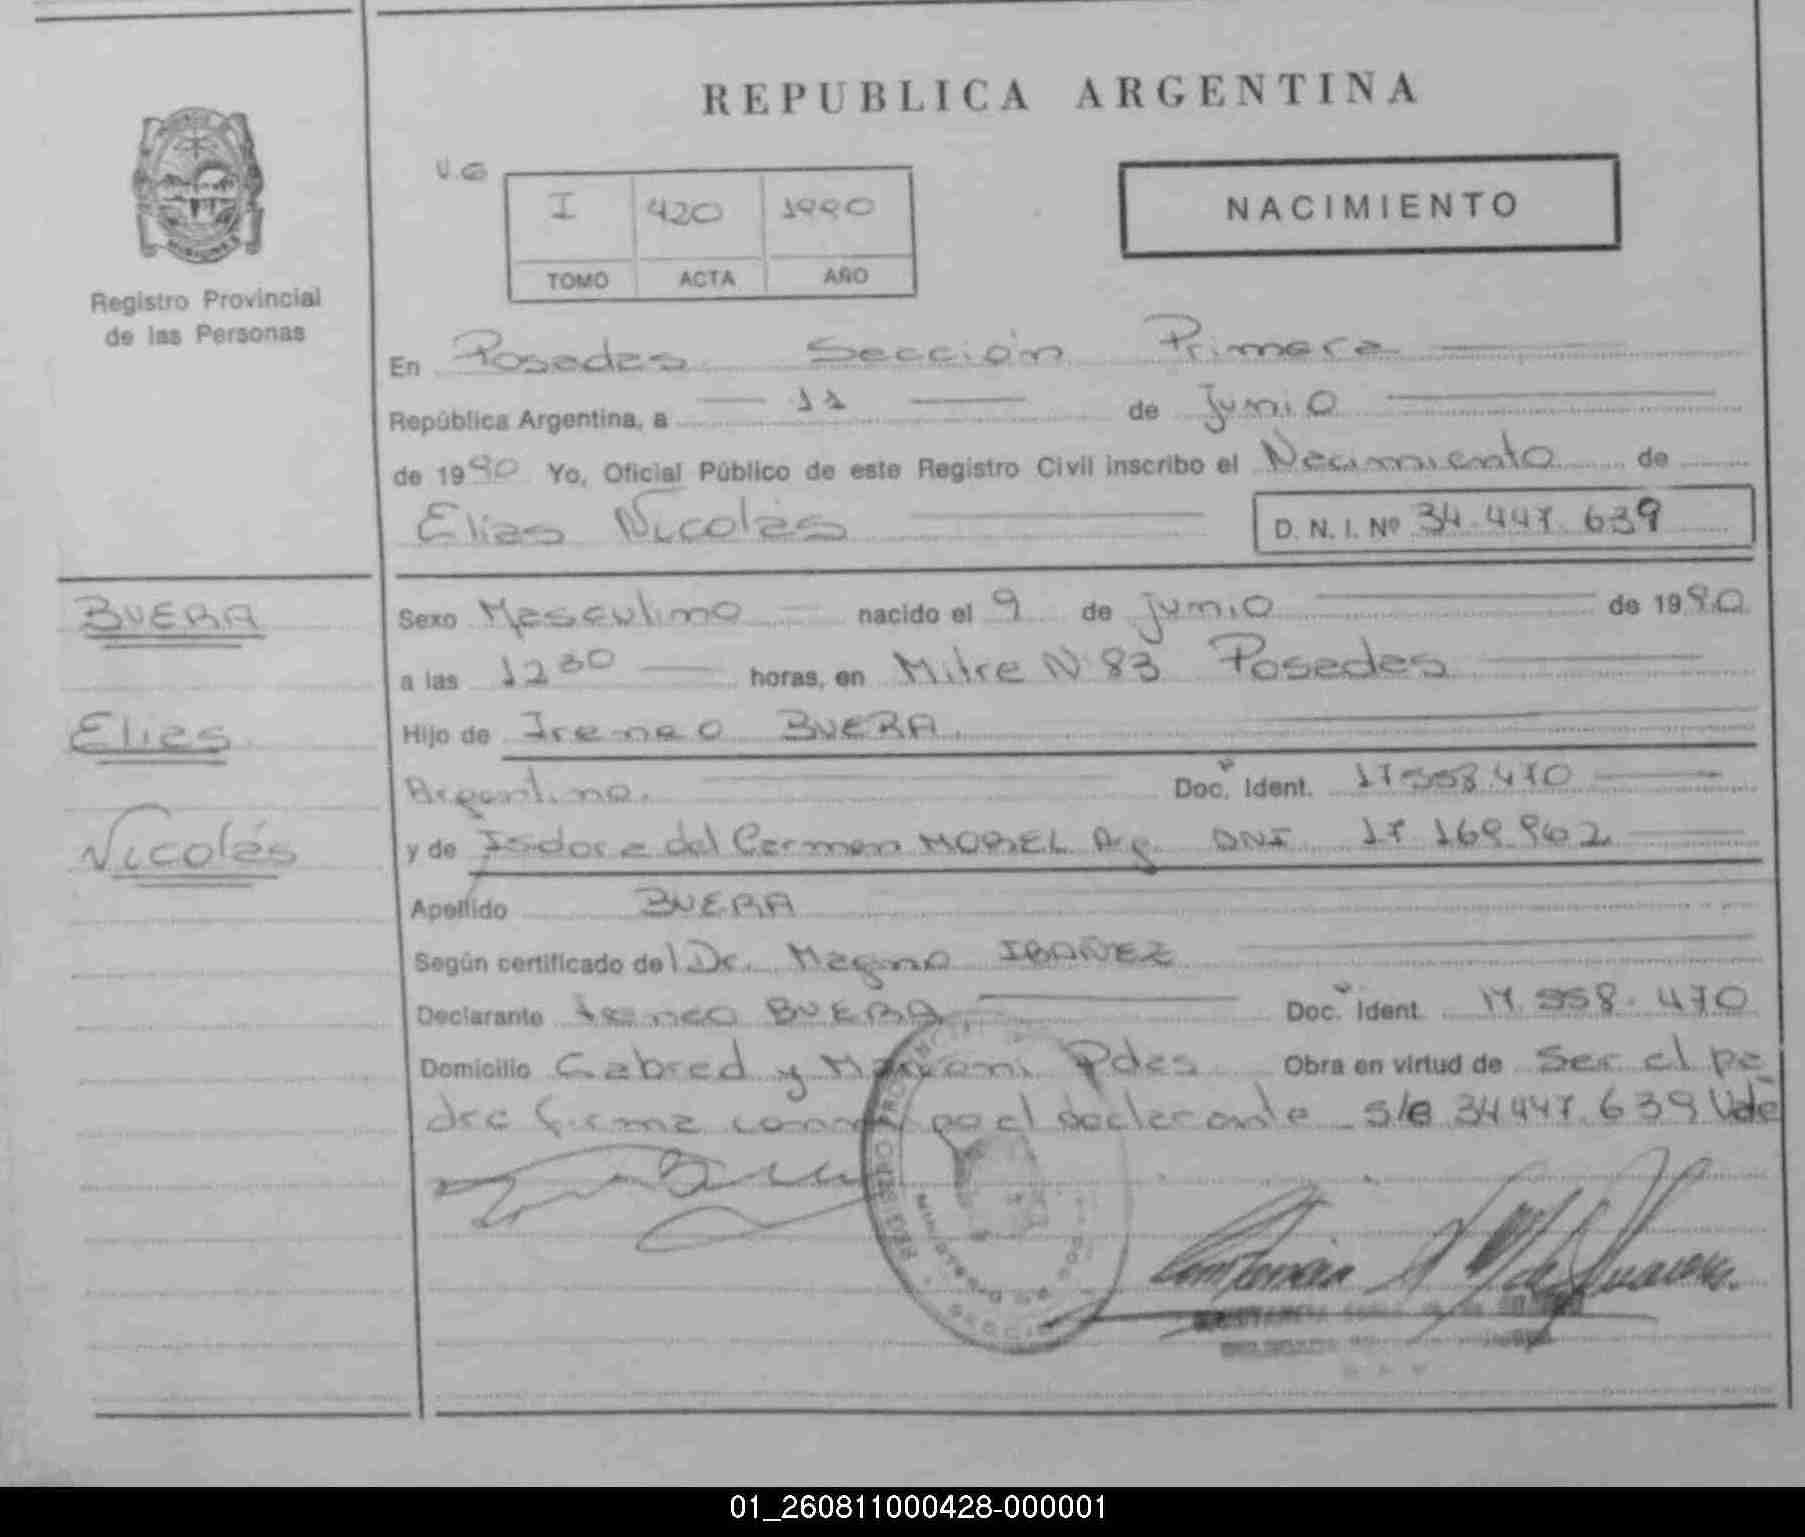 REPUBLICA ARGENTINA
V.G
I 420 1990
TOMO ACTA AÑO
NACIMIENTO
Registro Provincial
de las Personas
En Posadas Sección Primera
República Argentina, a 11 de junio
de 1990 Yo, Oficial Público de este Registro Civil inscribo el Nacimiento de
Elias Nicolás D. N. I. Nº 34.447.639
BUERA
Elias
Nicolás
Sexo Masculino nacido el 9 de junio de 1990
a las 12 30 horas, en Mitre N 83 Posadas
Hijo de Ireneo BUERA
Argentino. Doc. Ident. 17.558.470
y de Isidora del Carmen MOREL Arg. DNI 17.169.962
Apellido BUERA
Según certificado del Dr. Magno IBAÑEZ
Declarante Ireneo BUERA, Doc. Ident. 17.558.470
Domicilio Cabred y Marconi Pdas Obra en virtud de Ser el pa
dre firma conmigo el declarante S/B 34.447.639 Vale
REGISTRO PROVINCIAL
MINISTERIO DE GOBIERNO
01_260811000428-000001